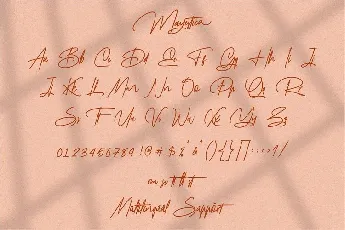 Aa Bb Cc Dd Ee Ff Gg Hh Ii Jj
Kk Ll Mm Nn Oo Pp Qq Rr
Ss Tt Uu Vv Ww Xx Yy Zz
0123456789 !@#$%
Multilingual Support